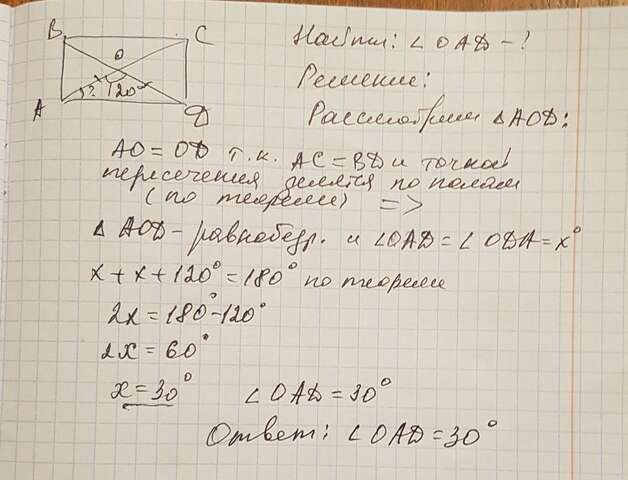 B C
O
? 120°
A D
Найти: ∠OAD - ?
Решение:
Рассмотрим △AOD:
AO = OD т.к. AC = BD и точкой
пересечения делятся по полам
(по теореме) =>
△ AOD - равнобедр. и ∠OAD = ∠ODA = x°
x + x + 120° = 180° по теореме
2x = 180° - 120°
2x = 60°
x = 30° ∠OAD = 30°
Ответ: ∠OAD = 30°